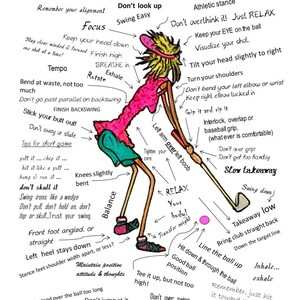 Don't look up
Athletic stance
Remember your alignment
Swing Easy
Focus
Don't overthink it! Just RELAX
Keep your EYE on the ball
Keep your head down
Visualize your shot.
Stay clear minded & focused
one shot at a time!
Finish high
BREATHE in
Tilt your head slightly to right
Tempo
Rotate
Exhale
Turn your shoulders
Bend at waste, not too much
Don't bend your left elbow
Keep right elbow tucked in
Don't go past parallel on backswing
FINISH BACKSWING
Grip it and rip it
Stick your butt out!
Interlock, overlap or
baseball grip.
(what ever is comfortable)
Let arm guide left boob
Don't sway or slide
Tips for short game
Tighten
your
core
Don't grip over grips
Don't get too handsy
putt it ... chip it ...
hit it like a putt ...
bump it run it ...
Slow takeaway
Knees slightly
bent
don't skull it
Swing down
RELAX
Your
body!
Swing irons like a wedge
Don't pull, don't look up, don't
top or skull, Trust your swing
Balance
Takeaway low
Transfer weight
Bring club straight back
Down the target line
Front foot angled, or
straight
Left heel stays down
Line the ball up
Stance feet shoulder width apart, or less?
Good ball
Position
Hit down & through the ball
Inhale...
exhale
Maintain positive
attitude & thoughts
Tee it up, but not
too high!